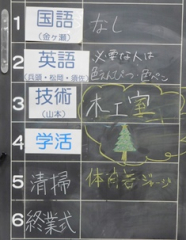 1 国語 なし
(金ヶ瀬)
2 英語 必要な人は
(兵頭・松岡・須佐) 色えんぴつ 色ペン
3 技術 木工室
(山本)
4 学活
5 清掃 体育舘ジャージ
6 終業式